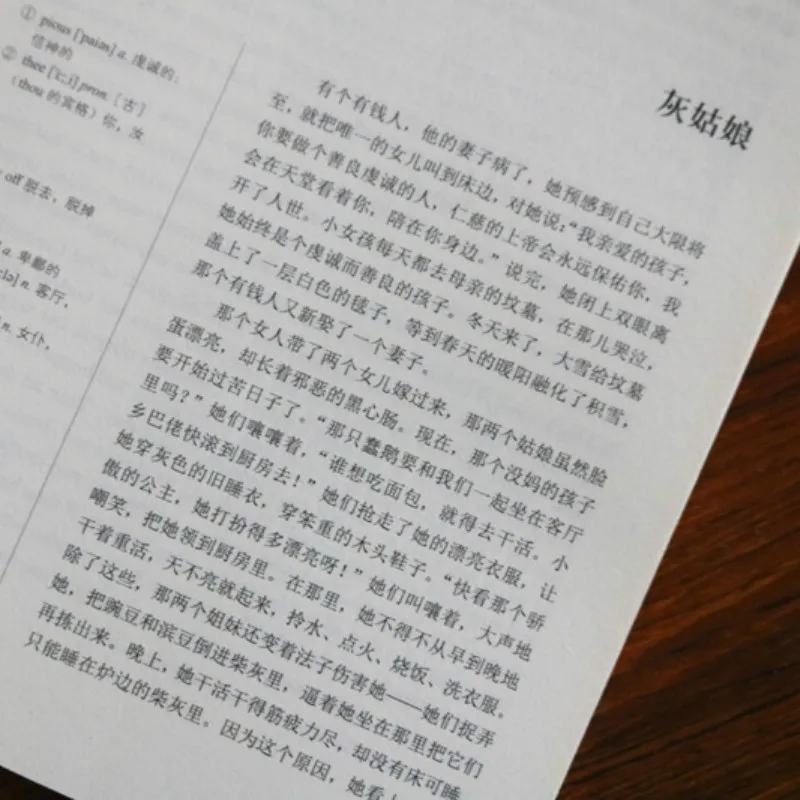 ① pious ['paiəs] a. 虔诚的;
信神的
② thee ['ði:] pron. [古]
(thou 的宾格) 你,汝
off 脱去,脱掉
a. 卑鄙的
n. 客厅,
n. 女仆,
灰姑娘
有个有钱人,他的妻子病了,她预感到自己大限将
至,就把唯一的女儿叫到床边,对她说:“我亲爱的孩子,
你要做个善良虔诚的人,仁慈的上帝会永远保佑你,我
会在天堂看着你,陪在你身边。”说完,她闭上双眼离
开了人世。小女孩每天都去母亲的坟墓,在那儿哭泣,
她始终是个虔诚而善良的孩子。冬天来了,大雪给坟墓
盖上了一层白色的毯子,等到春天的暖阳融化了积雪,
那个有钱人又新娶了一个妻子。
那个女人带了两个女儿嫁过来,那两个姑娘虽然脸
蛋漂亮,却长着邪恶的黑心肠。现在,那个没妈的孩子
要开始过苦日子了。“那只蠢鹅要和我们一起坐在客厅
里吗?”她们嚷嚷着,“谁想吃面包,就得去干活。小
乡巴佬快滚到厨房去!”她们抢走了她的漂亮衣服,让
她穿灰色的旧睡衣,穿笨重的木头鞋子。“快看那个骄
傲的公主,她打扮得多漂亮呀!”她们叫嚷着,大声地
嘲笑,把她领到厨房里。在那里,她不得不从早到晚地
干着重活,天不亮就起来,拎水、点火、烧饭、洗衣服。
除了这些,那两个姐妹还变着法子伤害她——她们捉弄
她,把豌豆和滨豆倒进柴灰里,逼着她坐在那里把它们
再拣出来。晚上,她干活干得筋疲力尽,却没有床可睡,
只能睡在炉边的柴灰里。因为这个原因,她看上